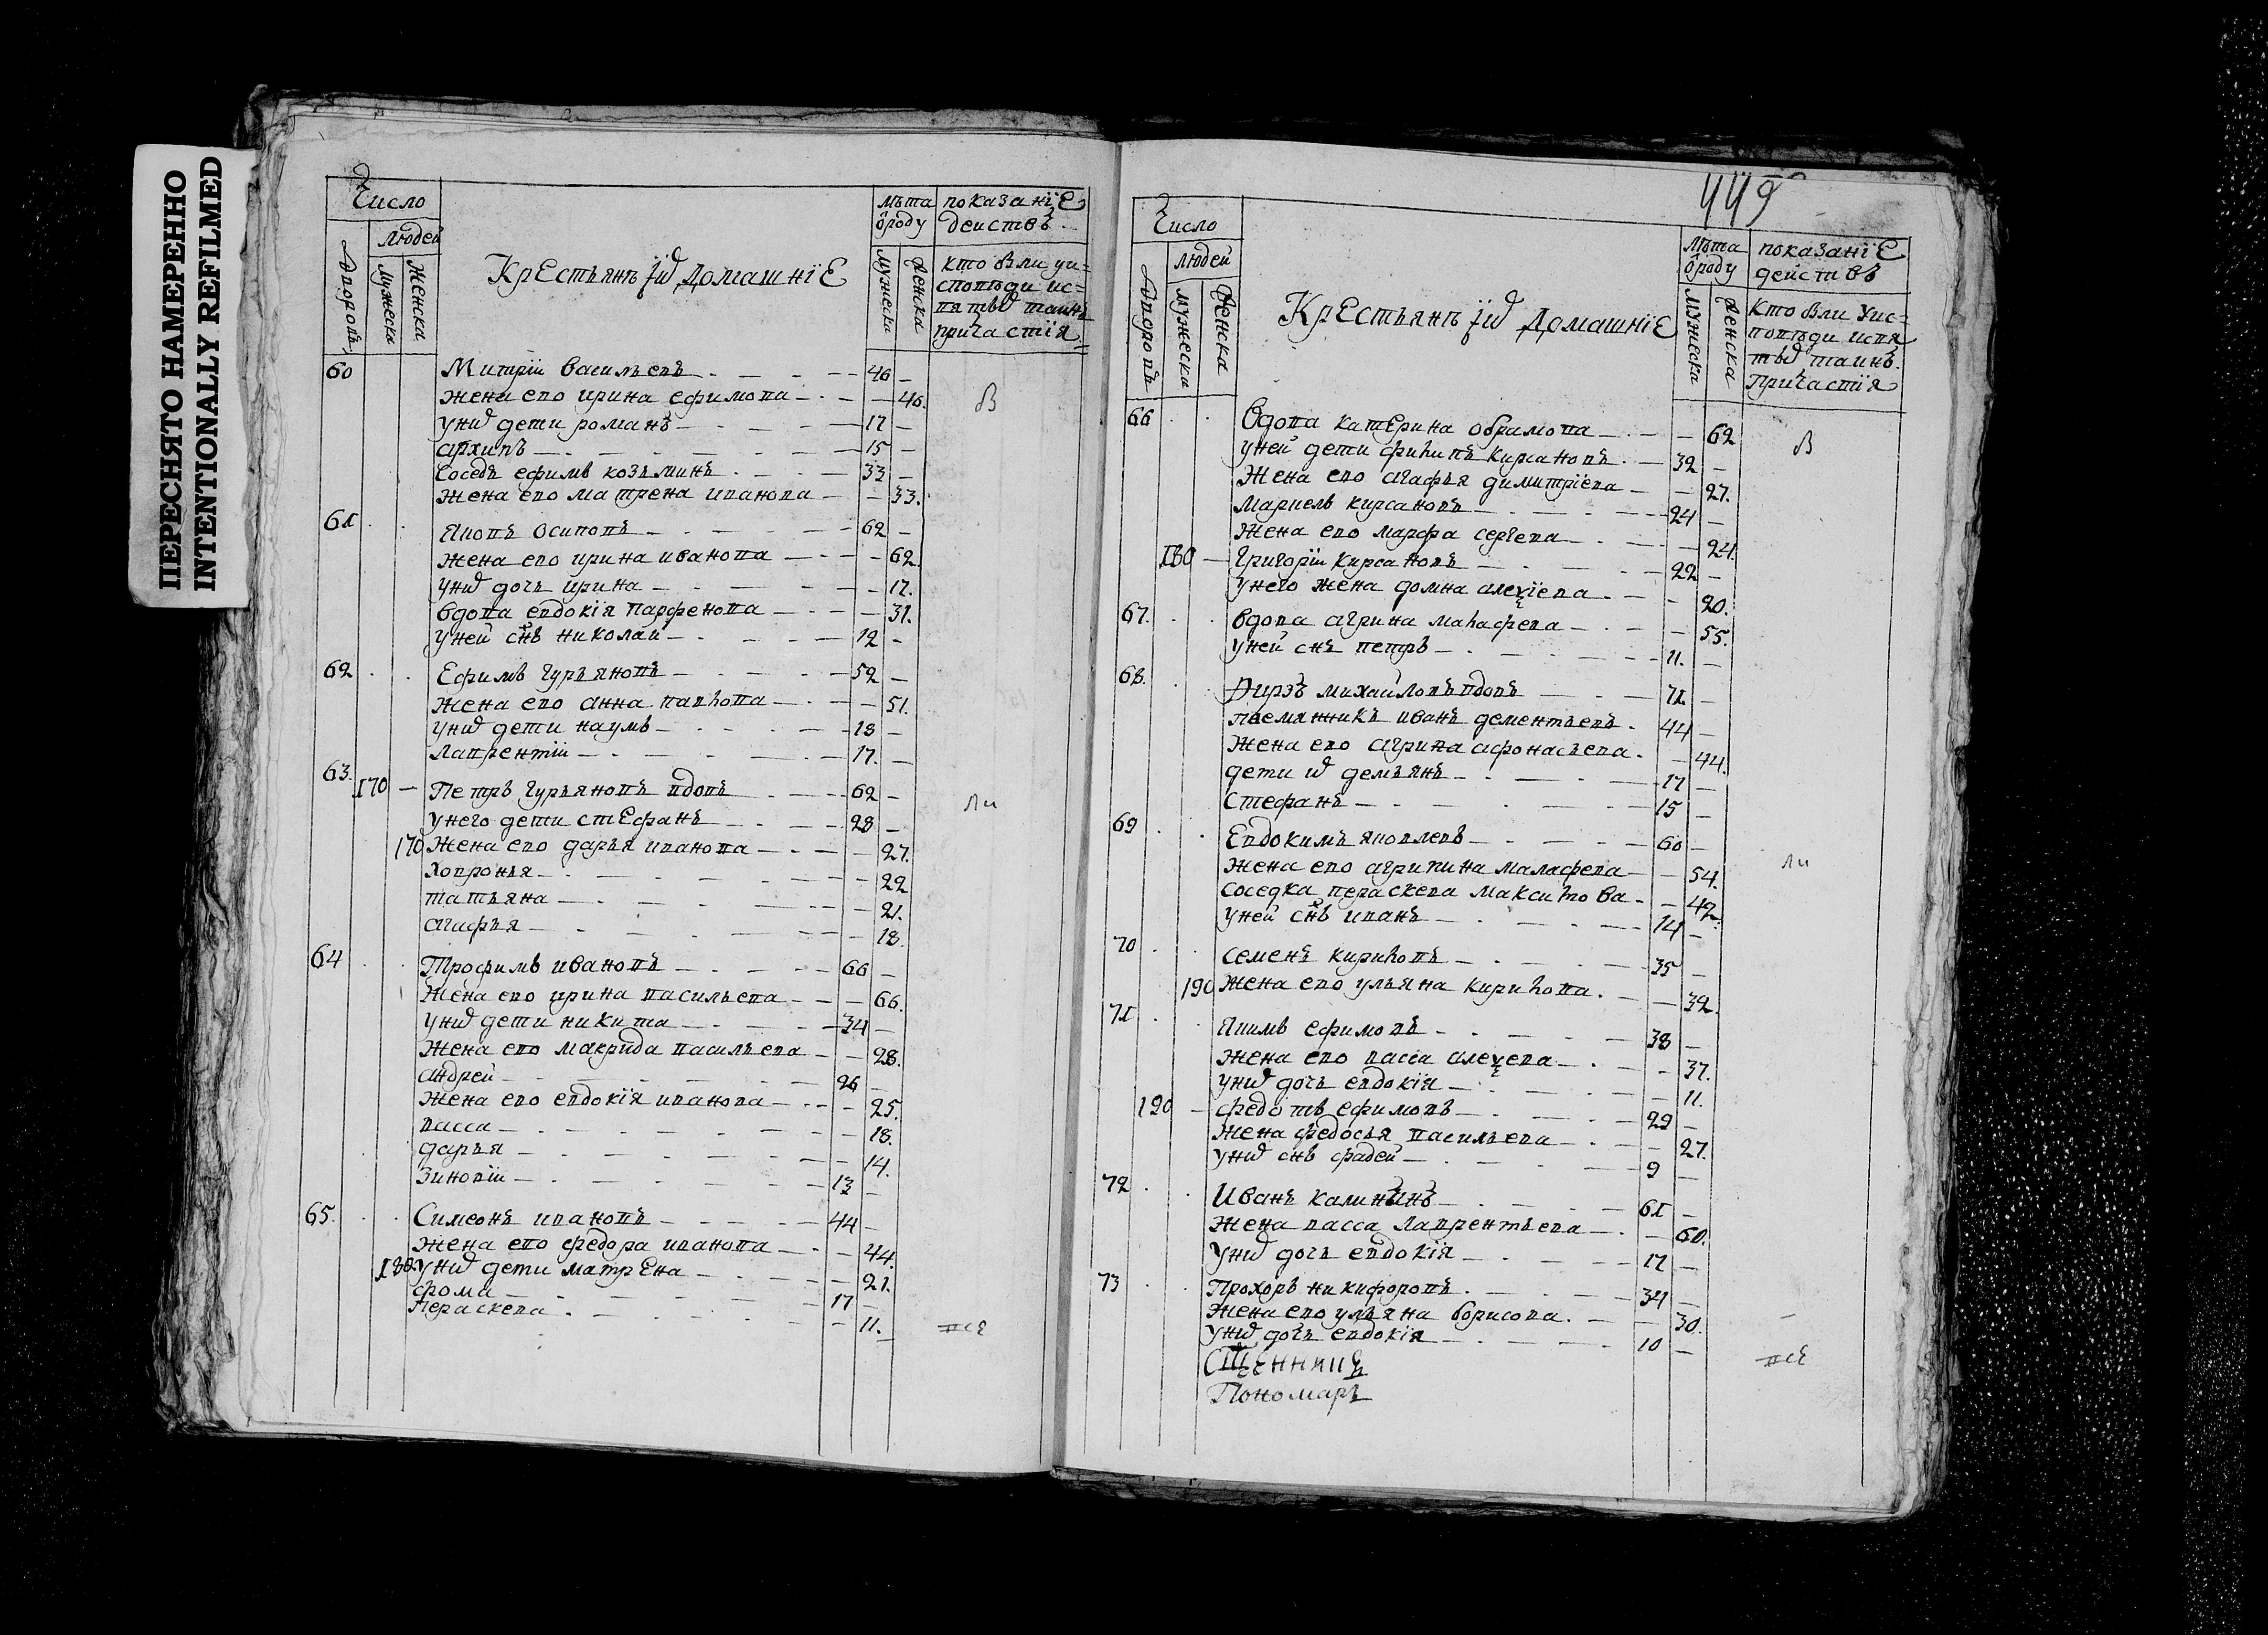 ПЕРЕСНЯТО НАМЕРЕННО
INTENTIONALLY REFILMED
Число
людей
дворовъ
мужеска
женска
Крестьянъ їѡ домашнїе
лѣта ѿроду
мужески
женска
показанїе деиствъ
кто вли уи=
споведи ис=
вятыѡ таинъ
причастїя
60 Митрїи васильевъ 46
жена ево ирина ефимова 46.
униѡ дети романъ 17
архипъ 15
Соседъ ефимъ козьминъ 33
жена ево матрена иванова 33.
61 Яковъ осиповъ 62
жена ево ирина иванова 62.
униѡ дочь ирина 17.
вдова евдокїя парфенова 31.
уней снъ николай 12
62 Ефимъ гурьяновъ 52
жена ево анна павлова 51.
униѡ дети наумъ 18
лаврентїи 17.
63. 170 Петръ гурьяновъ вдовъ 62
унего дети стефанъ 28
170 Жена ево дарья иванова 27.
ховронья 22
татьяна 21.
агафья 18.
64 Трофимъ ивановъ 66
жена ево ирина васильева 66.
униѡ дети никита 34
жена ево макрида васильева 28.
андрей 26
жена ево евдокїя иванова 25.
васса 18.
дарья 14.
зиновїи 13
65. Симеонъ ивановъ 44
жена ево федора иванова 44.
180 униѡ дети матрена 21.
фома 17
Параскева 11.
В
ли
все
449
Число
людей
дворовъ
мужеска
женска
Крестьянъ їѡ домашнїе
лѣта ѿроду
мужеска
женска
показанїе деиствъ
кто вли уис=
поведи исвя
тыѡ таинъ.
причастїя
66 вдова катерина обрамова 62
уней дети филипъ кирсановъ 32
жена ево агафья димитрїева 27.
Маркелъ кирсановъ 24
жена ево марфа сергева 24.
180 Григорїи кирсановъ 22
унего жена домна алеѯїева 20.
67. вдова агрина малафева 55.
уней снъ петръ 11.
68. михайловъ вдовъ 71
племянникъ иванъ дементьевъ 44
жена ево агрина афонасьева 44.
дети иѡ демьянъ 17
Стефанъ 15
69 Евдокимъ яковлевъ 60
жена ево агрипина малафева 54.
соседка параскева максимова 42.
уней снъ иванъ 14
70 Семенъ кириловъ 35
190 жена ево ульяна кирилова 32.
71 Якимъ ефимовъ 38
жена ево васса алеѯева 37.
униѡ дочь евдокїя 11.
190 федотъ ефимовъ 29
жена федосья васильева 27.
униѡ снъ фадей 9
72 Иванъ калининъ 61
жена васса лаврентьева 60.
униѡ дочь евдокїя 17
73 Прохоръ никифоровъ 34
жена ево ульяна борисова 30.
униѡ дочь евдокїя 10
Сщенникъ
Пономарь
В
ли
все